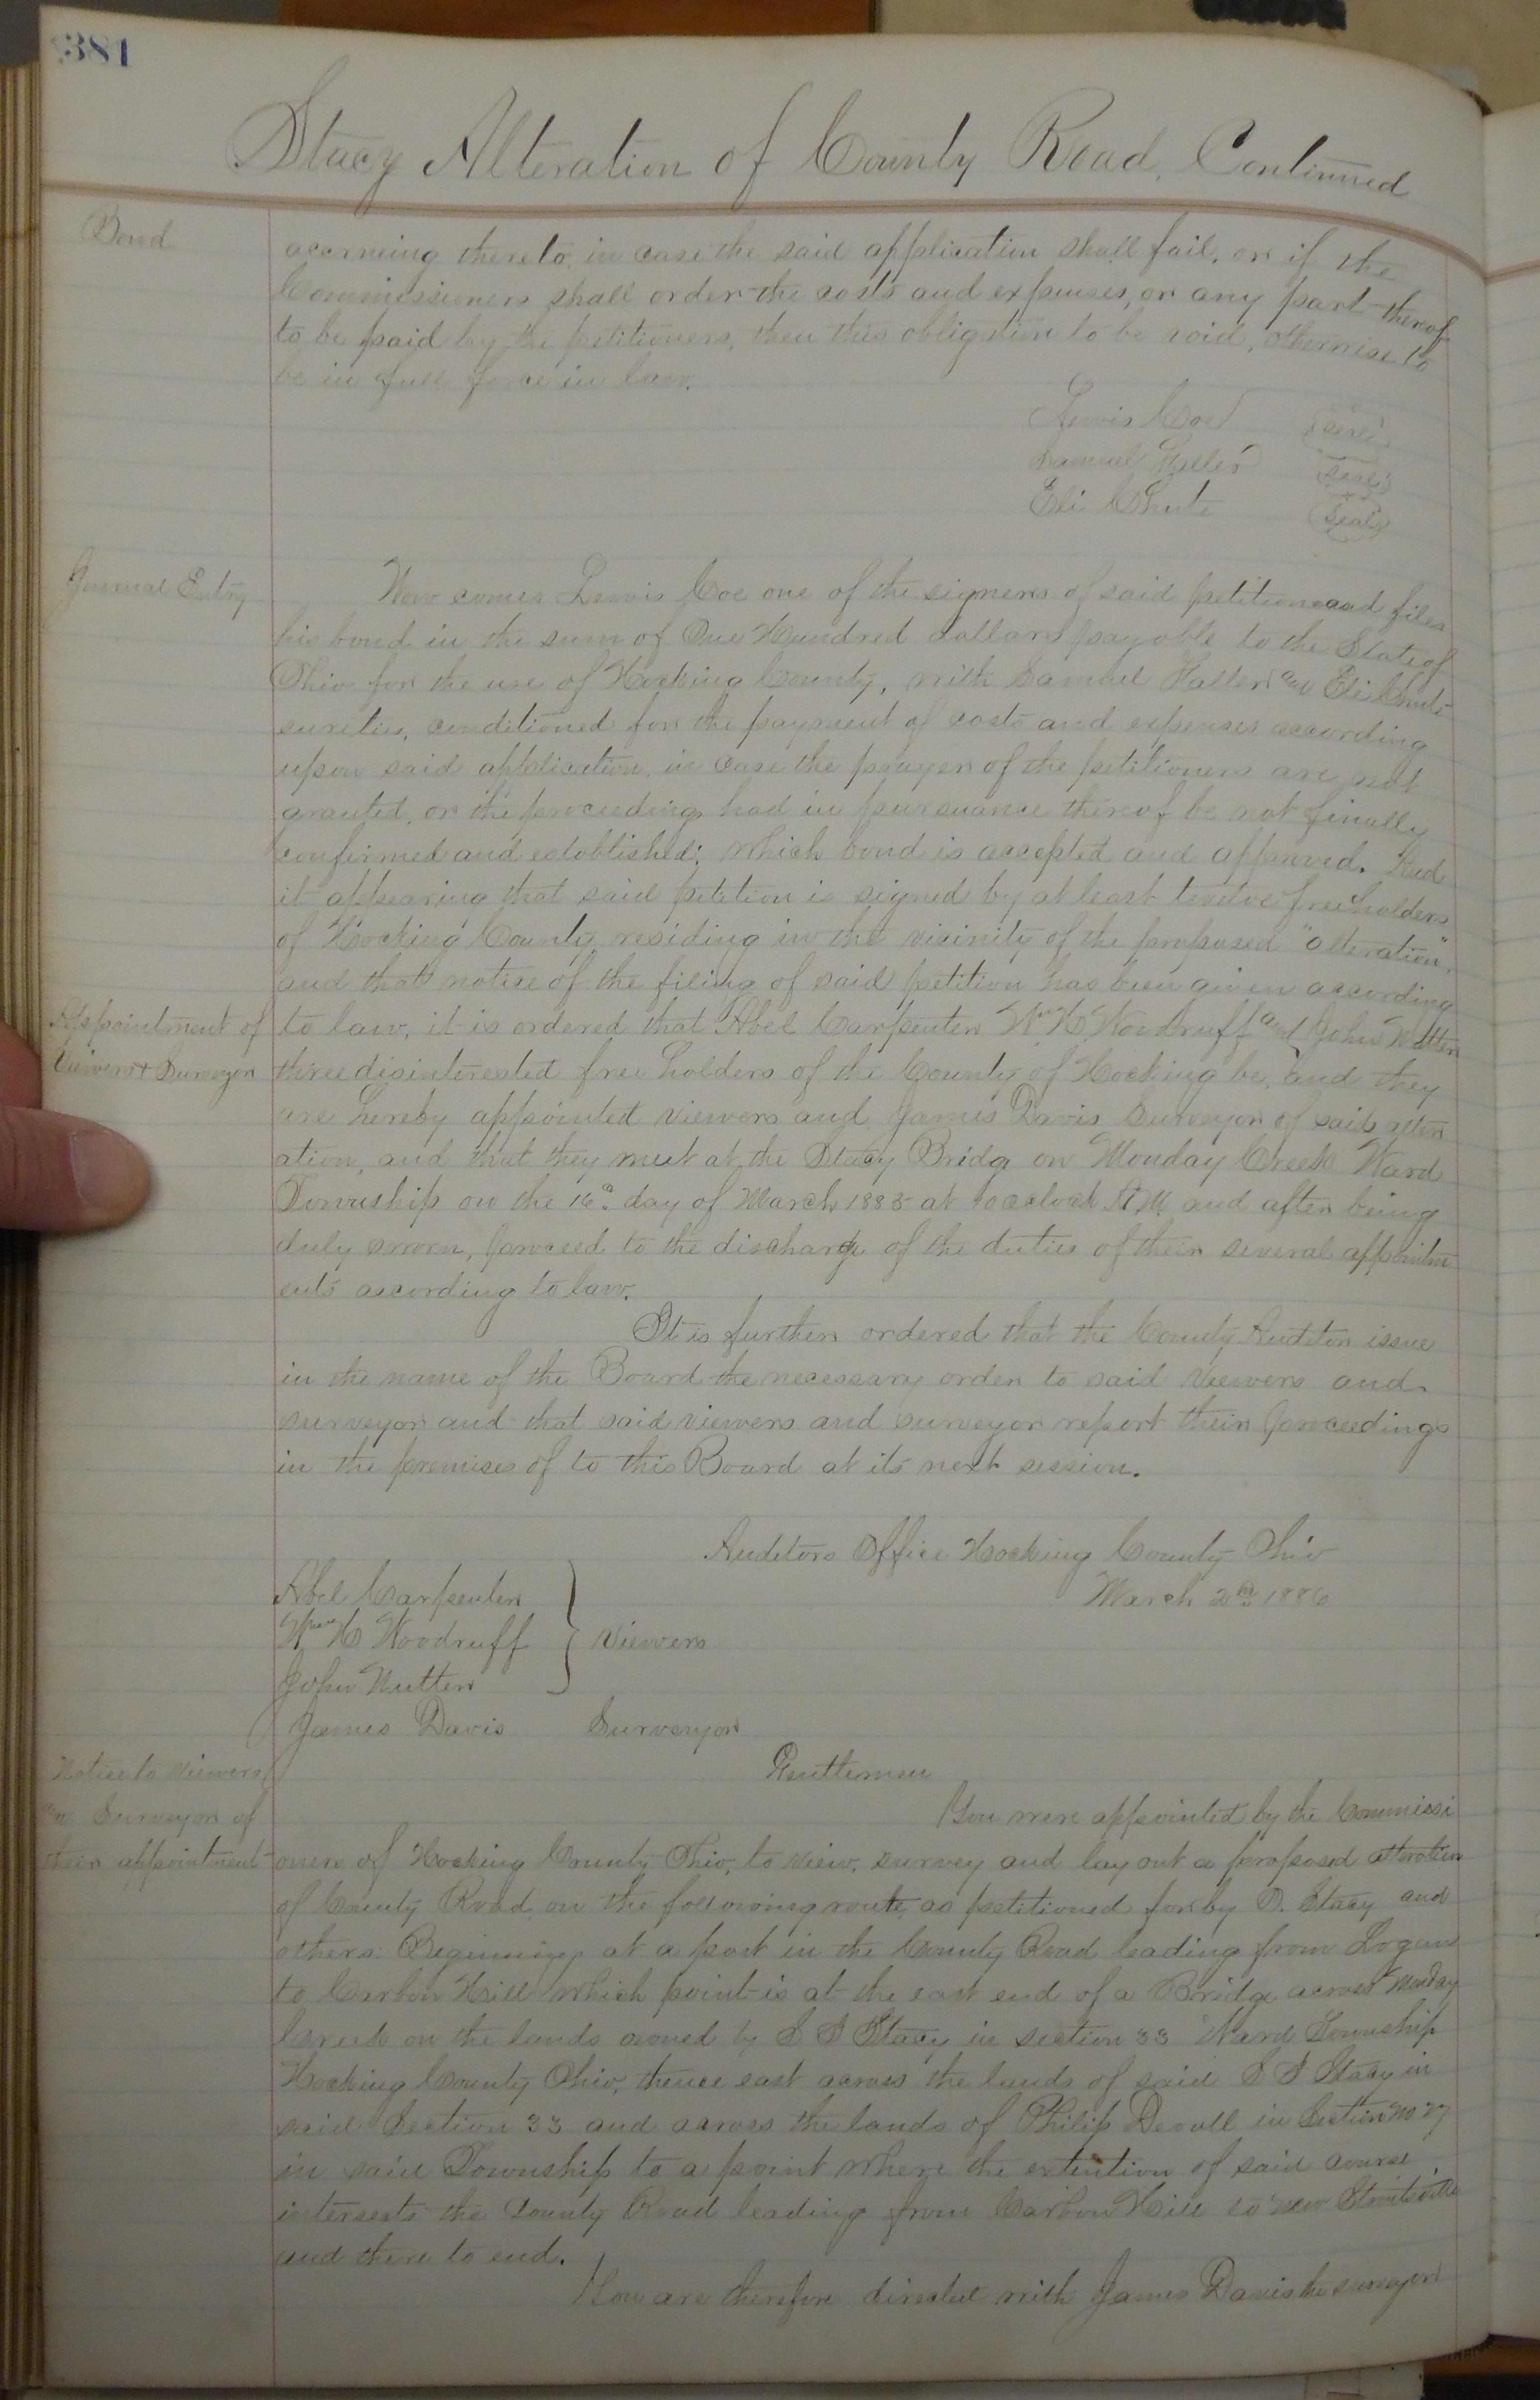 381
Stacy Alteration of County Road, Continued
Bond
accrueing thereto in case the said application shall fail, or if the
Commissioners shall order the costs and expenses, or any part thereof
to be paid by the petitioners, then this obligation to be void, otherwise to
be in full force in law.
Lewis Coe (seal)
Samuel Haller (seal)
Eli Chute (seal)
Journal Entry
Now comes Lewis Coe one of the signers of said petition and files
his bond in the sum of One Hundred dollars payable to the State of
Ohio for the use of Hocking County, with Samuel Haller and Eli Chute
sureties, conditioned for the payment of costs and expenses according
upon said application, in case the prayer of the petitioners are not
granted, or the proceedings had in pursuance thereof be not finally
confirmed and established; which bond is accepted and approved. And
it appearing that said petition is signed by at least twelve freeholders
of Hocking County residing in the vicinity of the proposed "alteration",
and that notice of the filing of said petition has been given according
Appointment of
Viewers & Surveyor
to law, it is ordered that Abel Carpenter Wm H Woodruff and John Nutter
three disinterested free holders of the County of Hocking be, and they
are hereby appointed viewers and James Davis Surveyor of said alter
ation, and that they meet at the Stacy Bridg on Monday Creek Ward
Township on the 16" day of March 1885 at 10 oclock A.M. and after being
duly sworn, proceed to the discharge of the duties of their several appointm
ents according to law.
It is further ordered that the County Auditor issue
in the name of the Board the necessary order to said viewers and
surveyor and that said viewers and surveyor report their proceedings
in the premises of to this Board at its next session.
Auditors Office Hocking County Ohio
March 2nd 1886
Abel Carpenter
Wm H Woodruff } Viewers
John Nutter
James Davis Surveyor
Notice to Viewers
and Surveyor of
their appointment
Gentlemen
You were appointed by the Commissi
oners of Hocking County Ohio, to view, survey and lay out a proposed alteration
of County Road on the following route, as petitioned for by D. Stacy and
others: Beginning at a post in the County Road leading from Logan
to Carbon Hill which point is at the east end of a Bridge across Monday
Creek on the lands owned by S I Stacy in section 33 Ward Township
Hocking County Ohio, thence east across the lands of said S I Stacy in
said Section 33 and across the lands of Philip Devoll in Section No 27
in said Township to a point where the extention of said course
intersects the County Road leading from Carbon Hill to New Straitsville
and there to end.
You are therefore directed with James Davis the surveyor